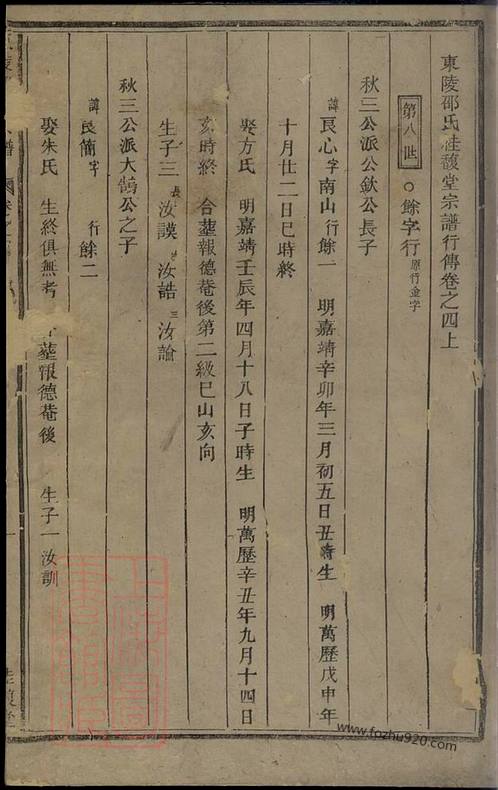 東陵邵氏桂馥堂宗譜行傳卷之四上
第八世 ○餘字行 原行金字
秋三公派公欽公長子
諱良心字南山行餘一 明嘉靖辛卯年三月初五日丑時生 明萬歷戊申年
十月廿二日巳時終
娶方氏 明嘉靖壬辰年四月十八日子時生 明萬歷辛丑年九月十四日
亥時終 合塟報德菴後第二級巳山亥向
生子三 長汝謨 次汝誥 三汝論
秋三公派大鵠公之子
諱良簡字 行餘二
娶朱氏 生終俱無考 塟報德菴後 生子一汝訓
www.fozhu920.com